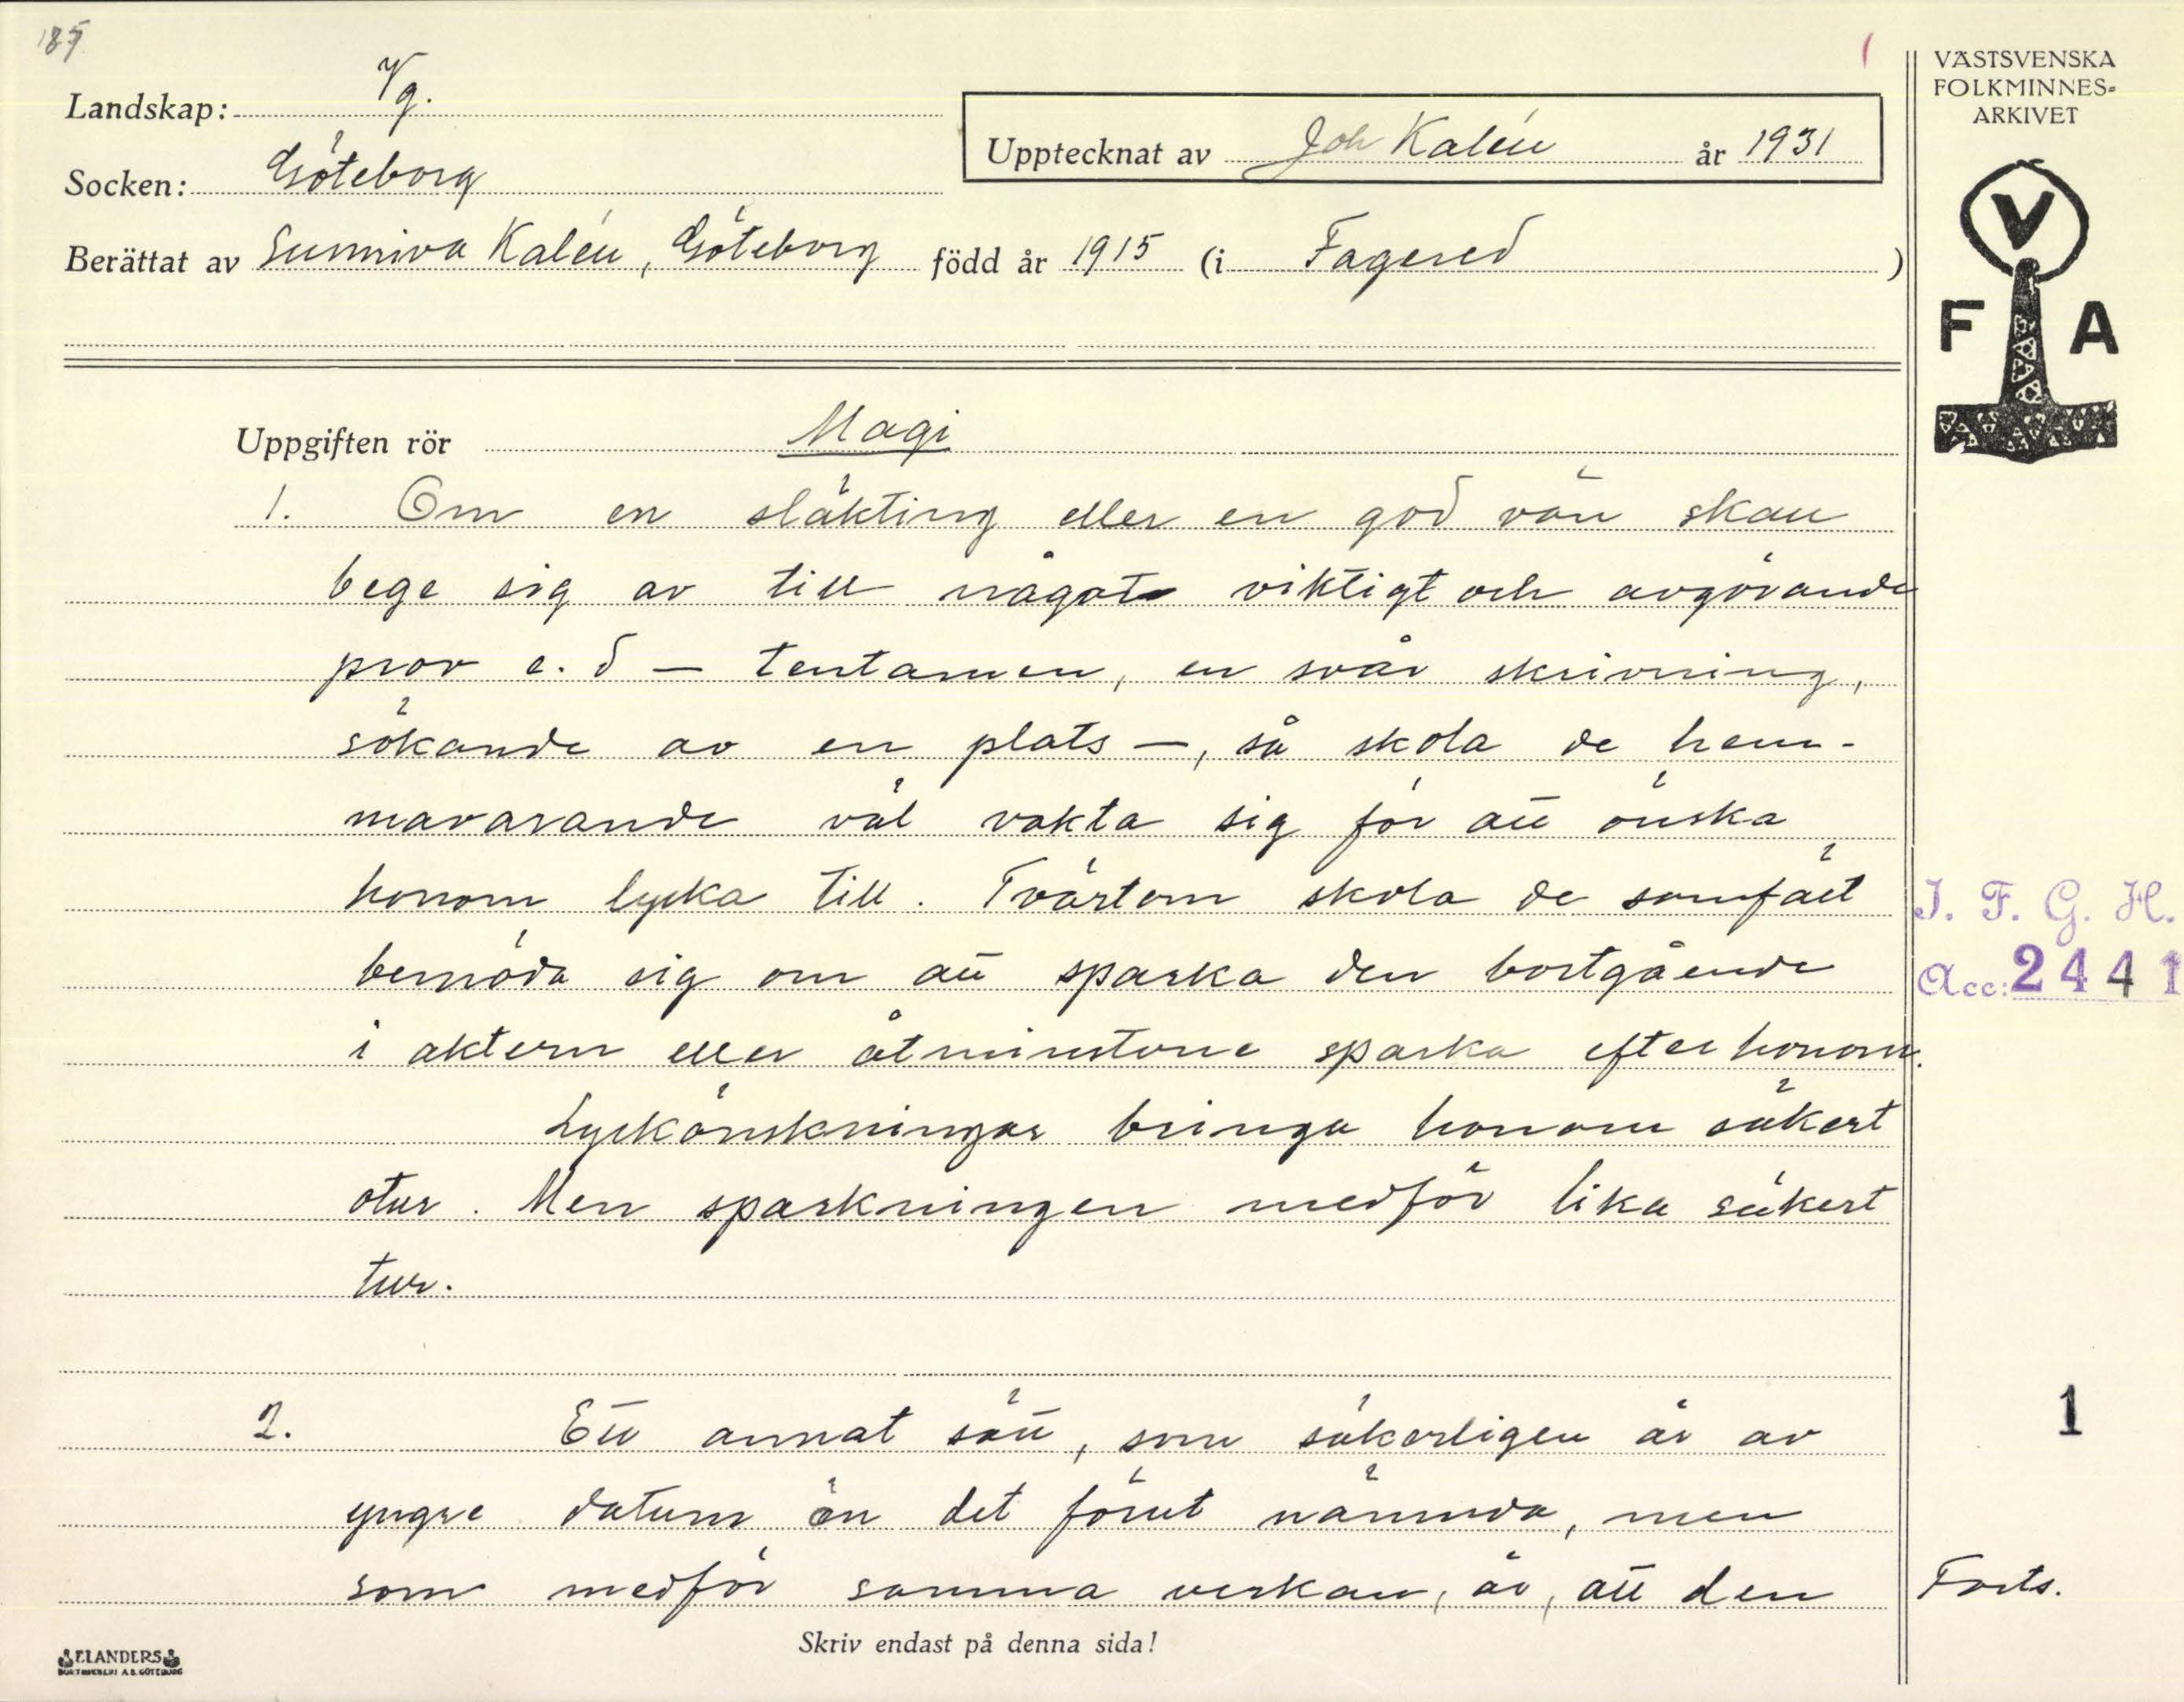 185
Landskap: Vg.
Socken: Göteborg
Upptecknat av Joh Kalén år 1931
Berättat av Sunniva Kalén, Göteborg född år 1915 (i Fagered )
VÄSTSVENSKA
FOLKMINNES-
ARKIVET
V
F A
Uppgiften rör Magi
1. Om en släkting eller en god vän skall
bege sig av till något viktigt och avgörande
prov e. d – tentamen, en svår skrivning,
sökande av en plats –, så skola de hem-
mavarande väl vakta sig för att önska
honom lycka till. Tvärtom skola de samfält
bemöda sig om att sparka den bortgående
i aktern eller åtminstone sparka efter honom.
Lyckönskningar bringa honom säkert
otur. Men sparkningen medför lika säkert
tur.
I. F. G. H.
Acc: 2441
2. Ett annat sätt, som säkerligen är av
yngre datum än det förut nämnda, men
som medför samma verkan, är, att den
1
Forts.
Skriv endast på denna sida!
ELANDERS
BOKTRYCKERI A.B. GÖTEBORG